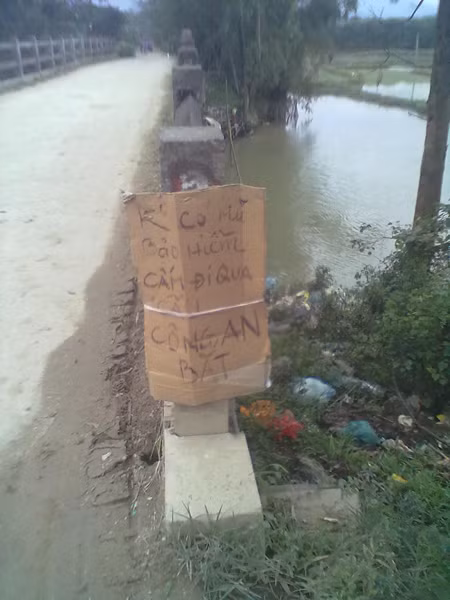 K' CO MŨ
BẢO HIỂM
CẤM ĐI QUA
CẦU
CÔNG AN
BẮT